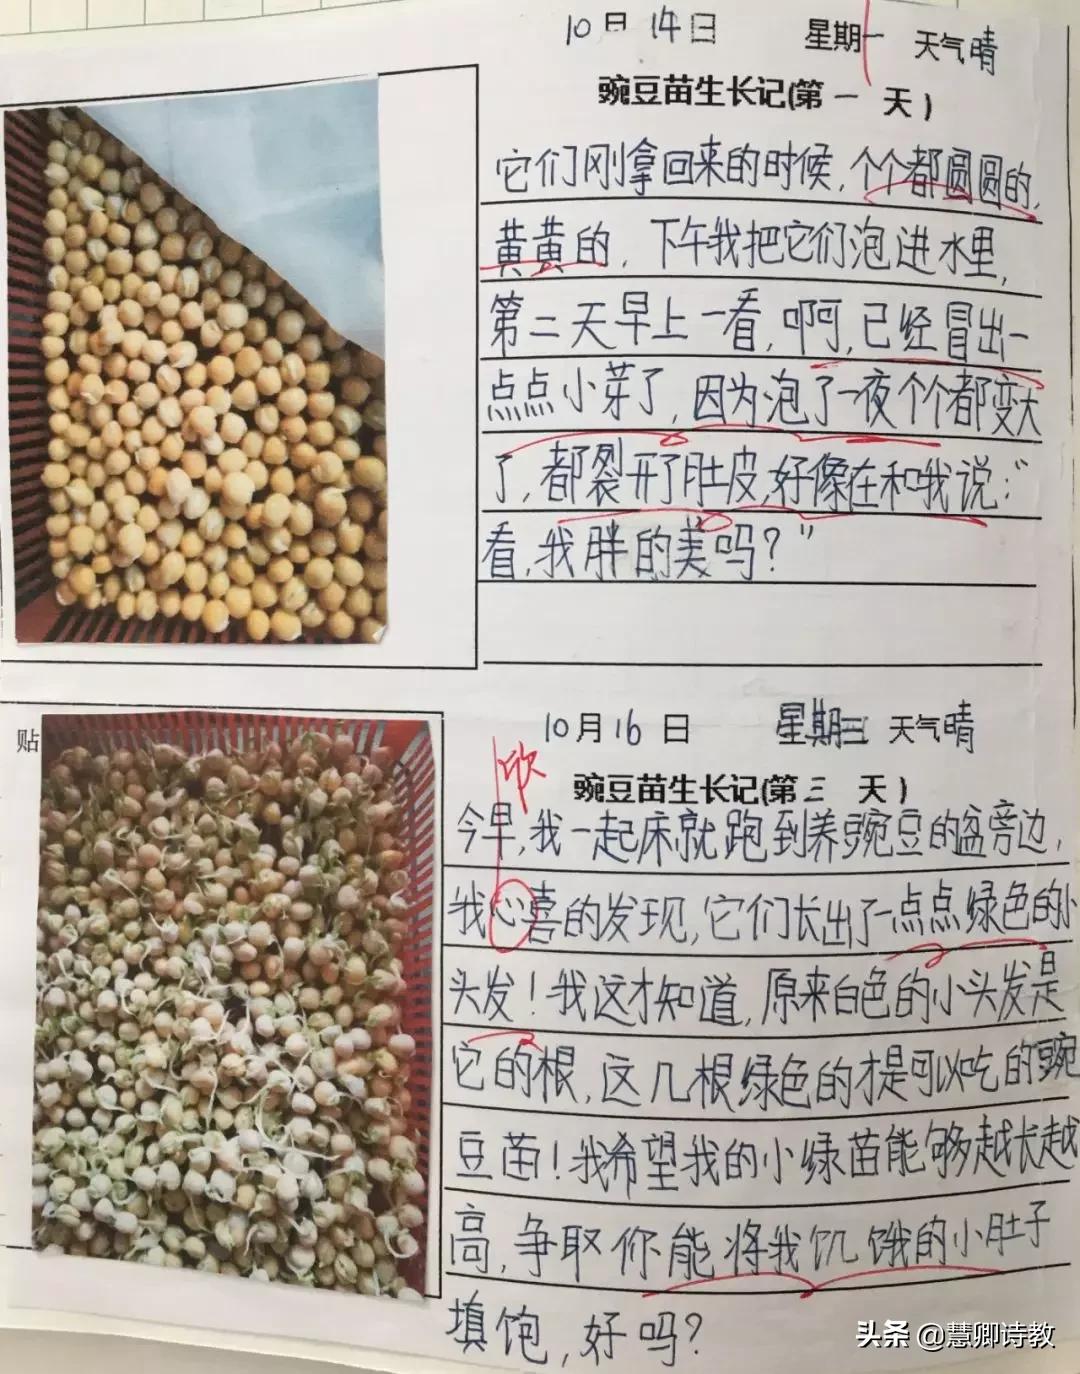 10月14日 星期一 天气晴
豌豆苗生长记(第一天)
它们刚拿回来的时候,个个都圆圆的,
黄黄的,下午我把它们泡进水里,
第二天早上一看,啊,已经冒出一
点点小芽了,因为泡了一夜个个都变大
了,都裂开了肚皮,好像在和我说:“
看,我胖的美吗?”
贴
10月16日 星期三 天气晴
欣
豌豆苗生长记(第三天)
今早,我一起床就跑到养豌豆的盆旁边,
我心喜的发现,它们长出了一点点绿色的小
头发!我这才知道,原来白色的小头发是
它的根,这几根绿色的才是可以吃的豌
豆苗!我希望我的小绿苗能够越长越
高,争取你能将我饥饿的小肚子
填饱,好吗?
头条 @慧卿诗教